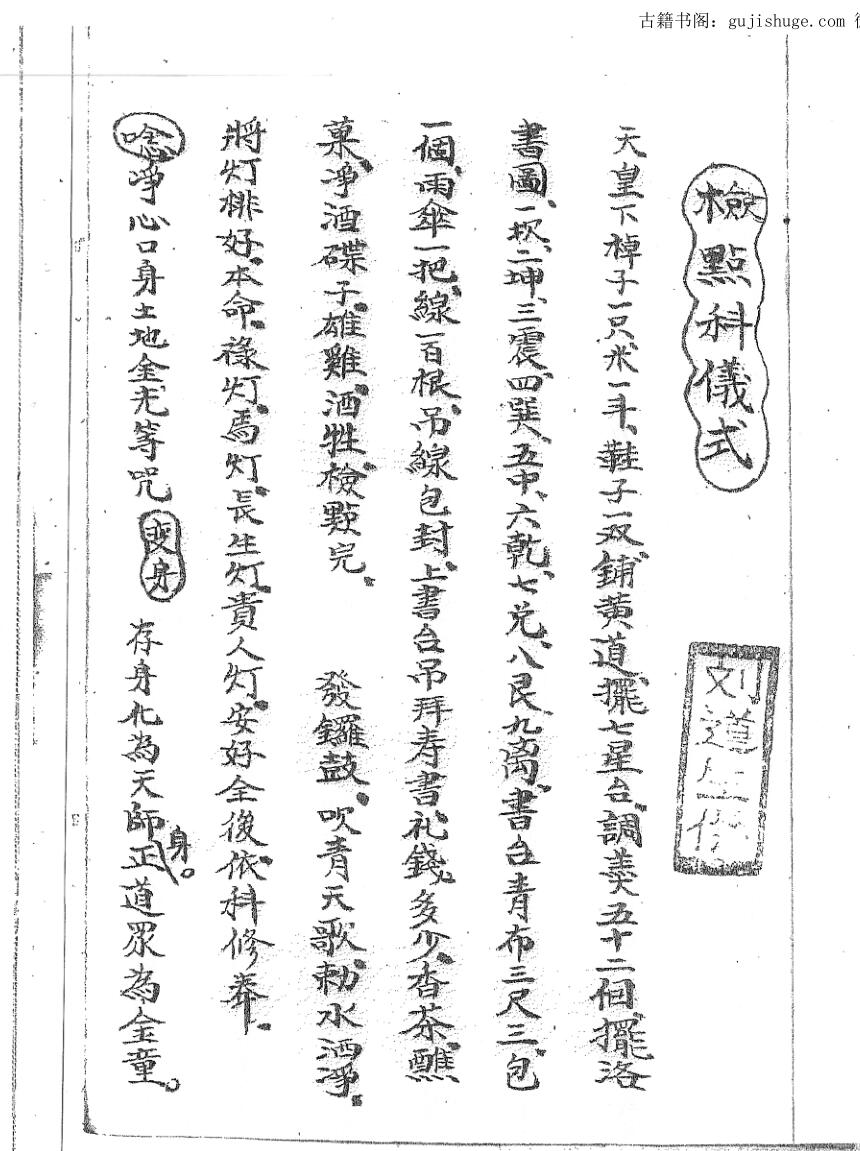 古籍书阁：gujishuge.com
檢點科儀式
天皇下棹子一只、米一斗、鞋子一双、鋪黄道、擺七星台、調羹五十二個、擺洛
書圖、一坎、二坤、三震、四巽、五中、六乾、七兑、八艮、九离、書台青布三尺三、包
一個、雨傘一把、線一百根、吊線包封、上書台吊拜寿書礼錢、多少、香茶醮
菓、淨酒碟子、雄雞酒牲檢點完、 發鑼鼓、吹青天歌、勅水洒淨。
將灯排好、本命、祿灯、馬灯、長生灯、貴人灯、安好全後依科修奉。
唸淨心口身土地金光等咒 变身 存身化為天師正身。道眾為金童。
刘道生